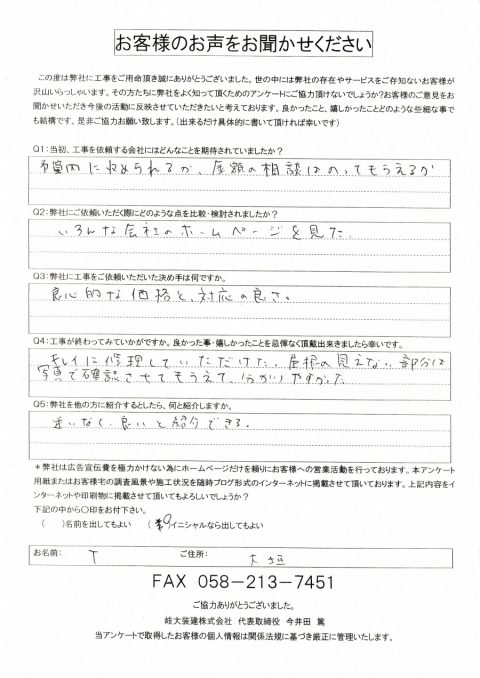 お客様のお声をお聞かせください
この度は弊社に工事をご用命頂き誠にありがとうございました。世の中には弊社の存在やサービスをご存知ないお客様が
沢山いらっしゃいます。その方たちに弊社をよく知って頂くためのアンケートにご協力頂けないでしょうか?お客様のご意見をお
聞かせいただき今後の活動に反映させていただきたいと考えております。良かったこと、嬉しかったことどのような些細な事で
も結構です。是非ご協力お願い致します。(出来るだけ具体的に書いて頂ければ幸いです)
Q1:当初、工事を依頼する会社にはどんなことを期待されていましたか?
予算内に収められるか、金額の相談はのってもらえるか
Q2:弊社にご依頼いただく際にどのような点を比較・検討されましたか?
いろんな会社のホームページを見た.
Q3:弊社に工事をご依頼いただいた決め手は何ですか。
良心的な価格と、対応の良さ。
Q4:工事が終わってみていかがですか。良かった事・嬉しかったことを忌憚なく頂戴出来きましたら幸いです。
キレイに修理していただけた。屋根の見えない部分は
写真で確認させてもらえて、分かりやすかった
Q5:弊社を他の方に紹介するとしたら、何と紹介しますか。
迷いなく、良いと紹介できる。
*弊社は広告宣伝費を極力かけない為にホームページだけを頼りにお客様への営業活動を行っております。本アンケート
用紙またはお客様宅の調査風景や施工状況を随時ブログ形式のインターネットに掲載させて頂いております。上記内容をイ
ンターネットや印刷物に掲載させて頂いてもよろしいでしょうか?
下記の中から〇印をお付下さい。
( )名前を出してもよい ( 〇イニシャルなら出してもよい
お名前: T ご住所: 大垣
FAX 058-213-7451
ご協力ありがとうございました。
岐大装建株式会社 代表取締役 今井田 篤
当アンケートで取得したお客様の個人情報は関係法規に基づき厳正に管理いたします。